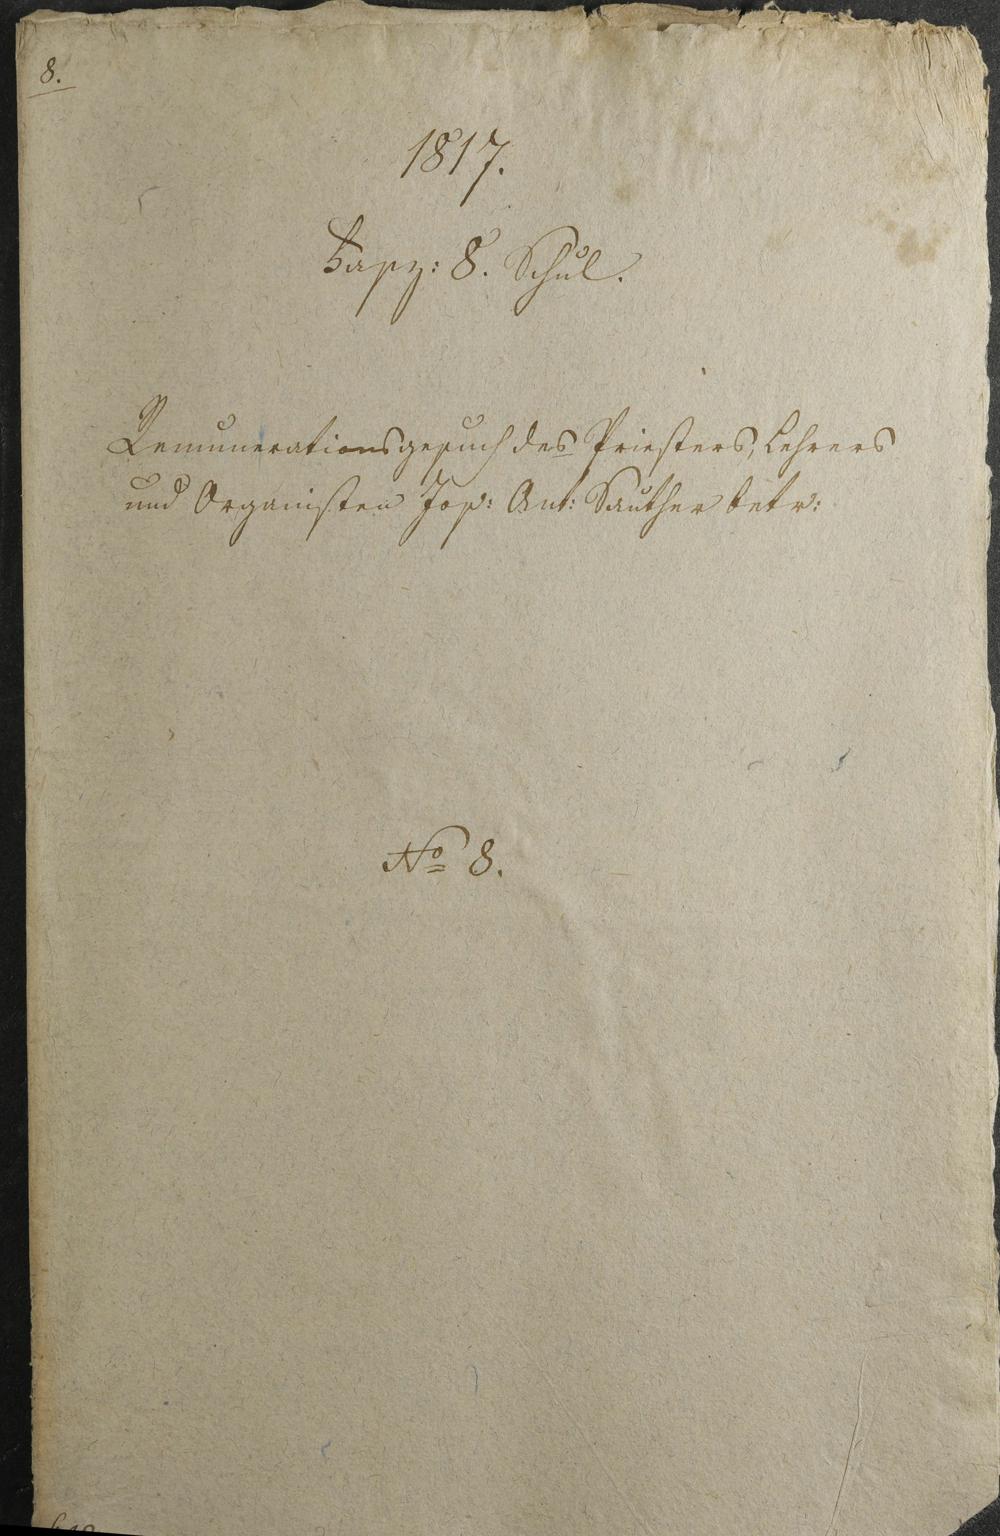 8.
1817.
Fasz: 8. Schul.
Remunerationsgesuch des Priesters, Lehrers
und Organisten Jos: Ant: Sauther betr:
No 8.